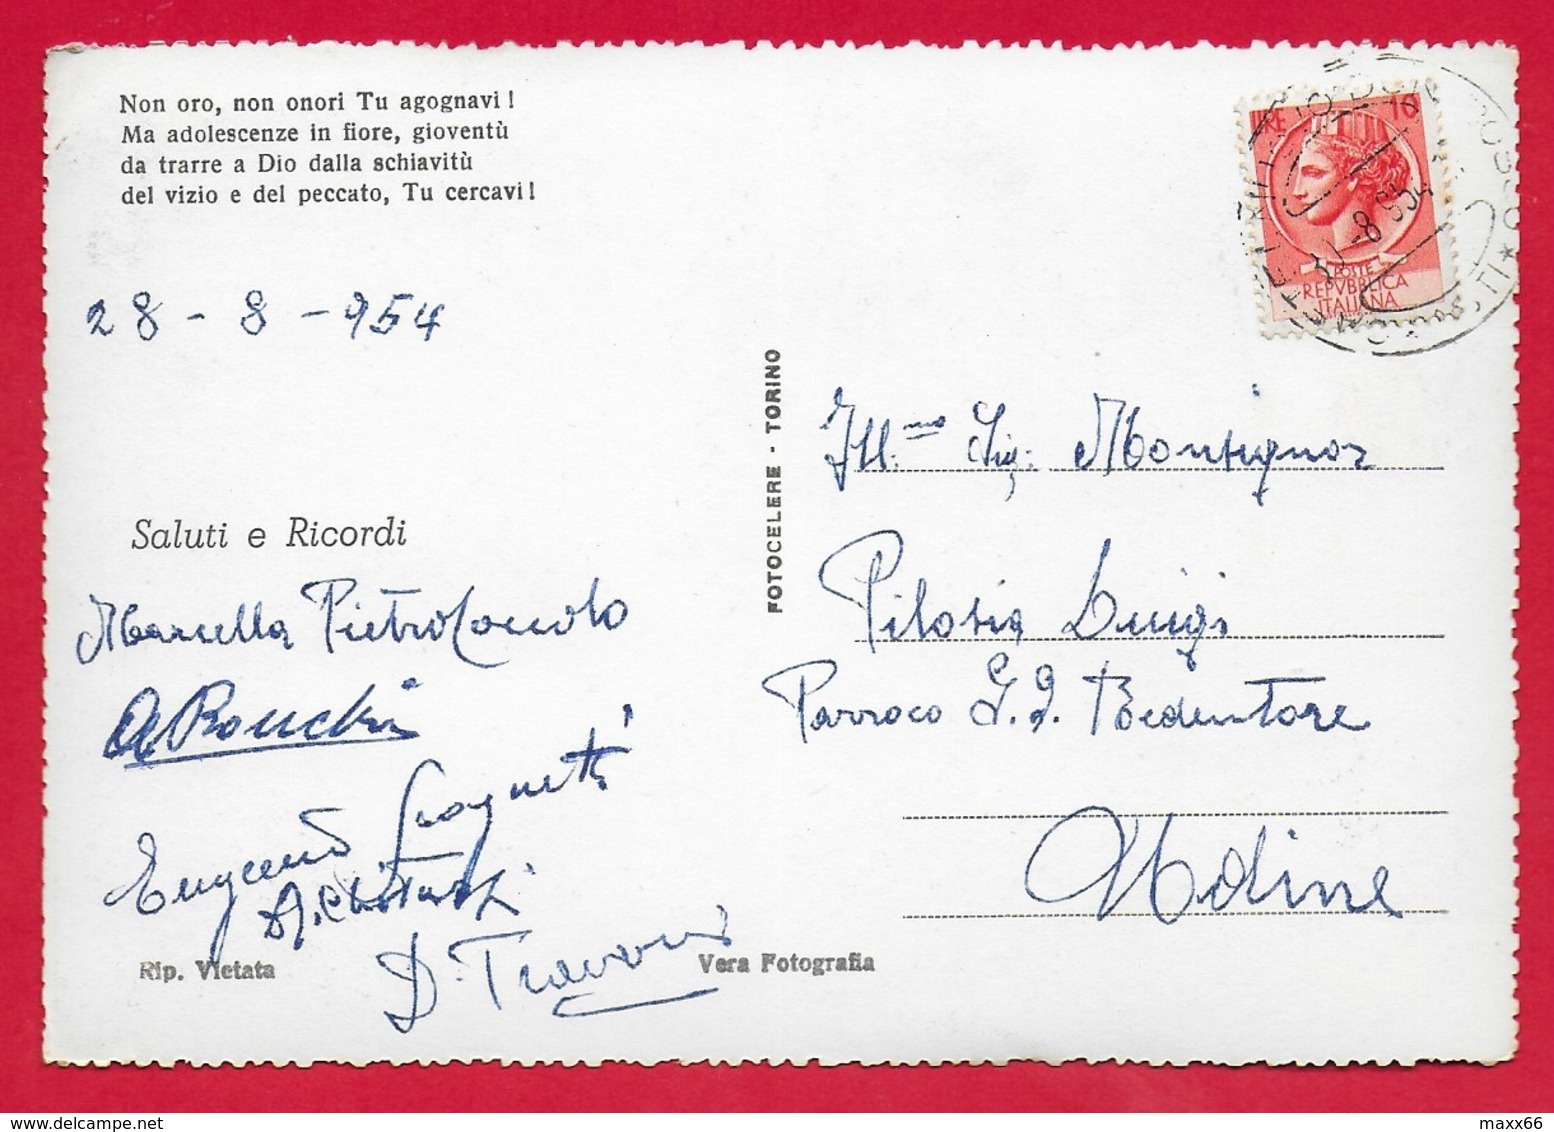 Non oro, non onori Tu agognavi!
Ma adolescenze in fiore, gioventù
da trarre a Dio dalla schiavitù
del vizio e del peccato, Tu cercavi!
28 - 8 - 954
Saluti e Ricordi
Marcella
A. Ronchi
Eugenio
D.
Rip. Vietata
Vera Fotografia
FOTOCELERE - TORINO
LIRE 10
POSTE
REPVBBLICA
ITALIANA
-8 954
Ill.mo Sig. Monsignor
Pilosio Luigi
Parroco S.S. Redentore
Udine
maxx66